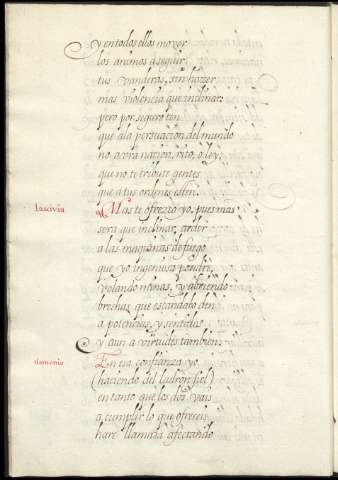 y en todos ellos mover
los animos a seguir
tus vanderas, sin hazer
mas violencia que inclinar:
pero por seguro ten
que a la persuacion del mundo
no avra nacion, rito, o ley,
que no te tribute gentes
que a tus ordenes esten.
lascivia
Mas te ofrezco yo, pues mas
sera que inclinar, arder
a las maquinas de fuego
que yo ingeniosa pondre,
volando minas, y abriendo
brechas que escandalo den
a potencias, y sentidos
y aun a virtudes tambien.
demonio
En esa confianza yo
(haciendo del ladron fiel)
en tanto que los dos vais
a cumplir lo que ofreceis
hare llamada afectando